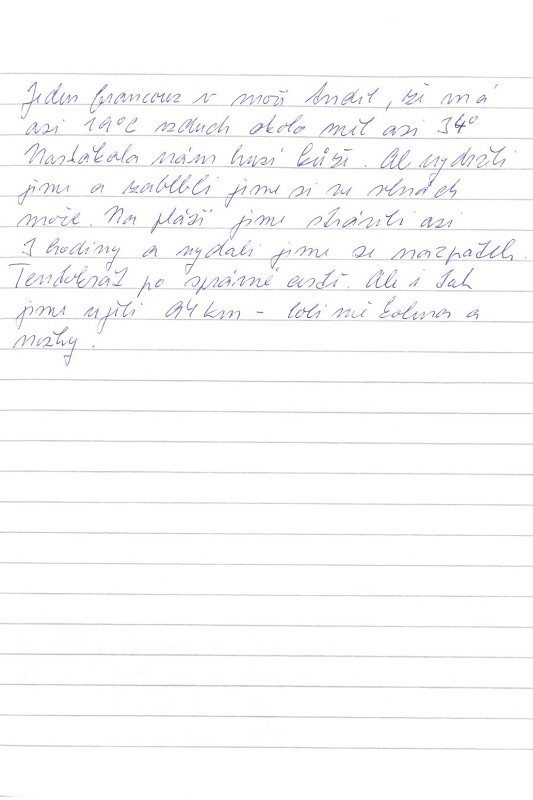 Jeden francouz v moři tvrdil, že má
asi 19°C vzduch okolo měl asi 34°
Naskákala nám husí kůže. Al vydrželi
jsme a zablbli jsme si ve vlnách
moře. Na pláži jsme strávili asi
3 hodiny a vydali jsme se nazpátek.
Tentokrát po správné cestě. Ale i tak
jsme ujeli 94 km - bolí mě kolena a
nožky.